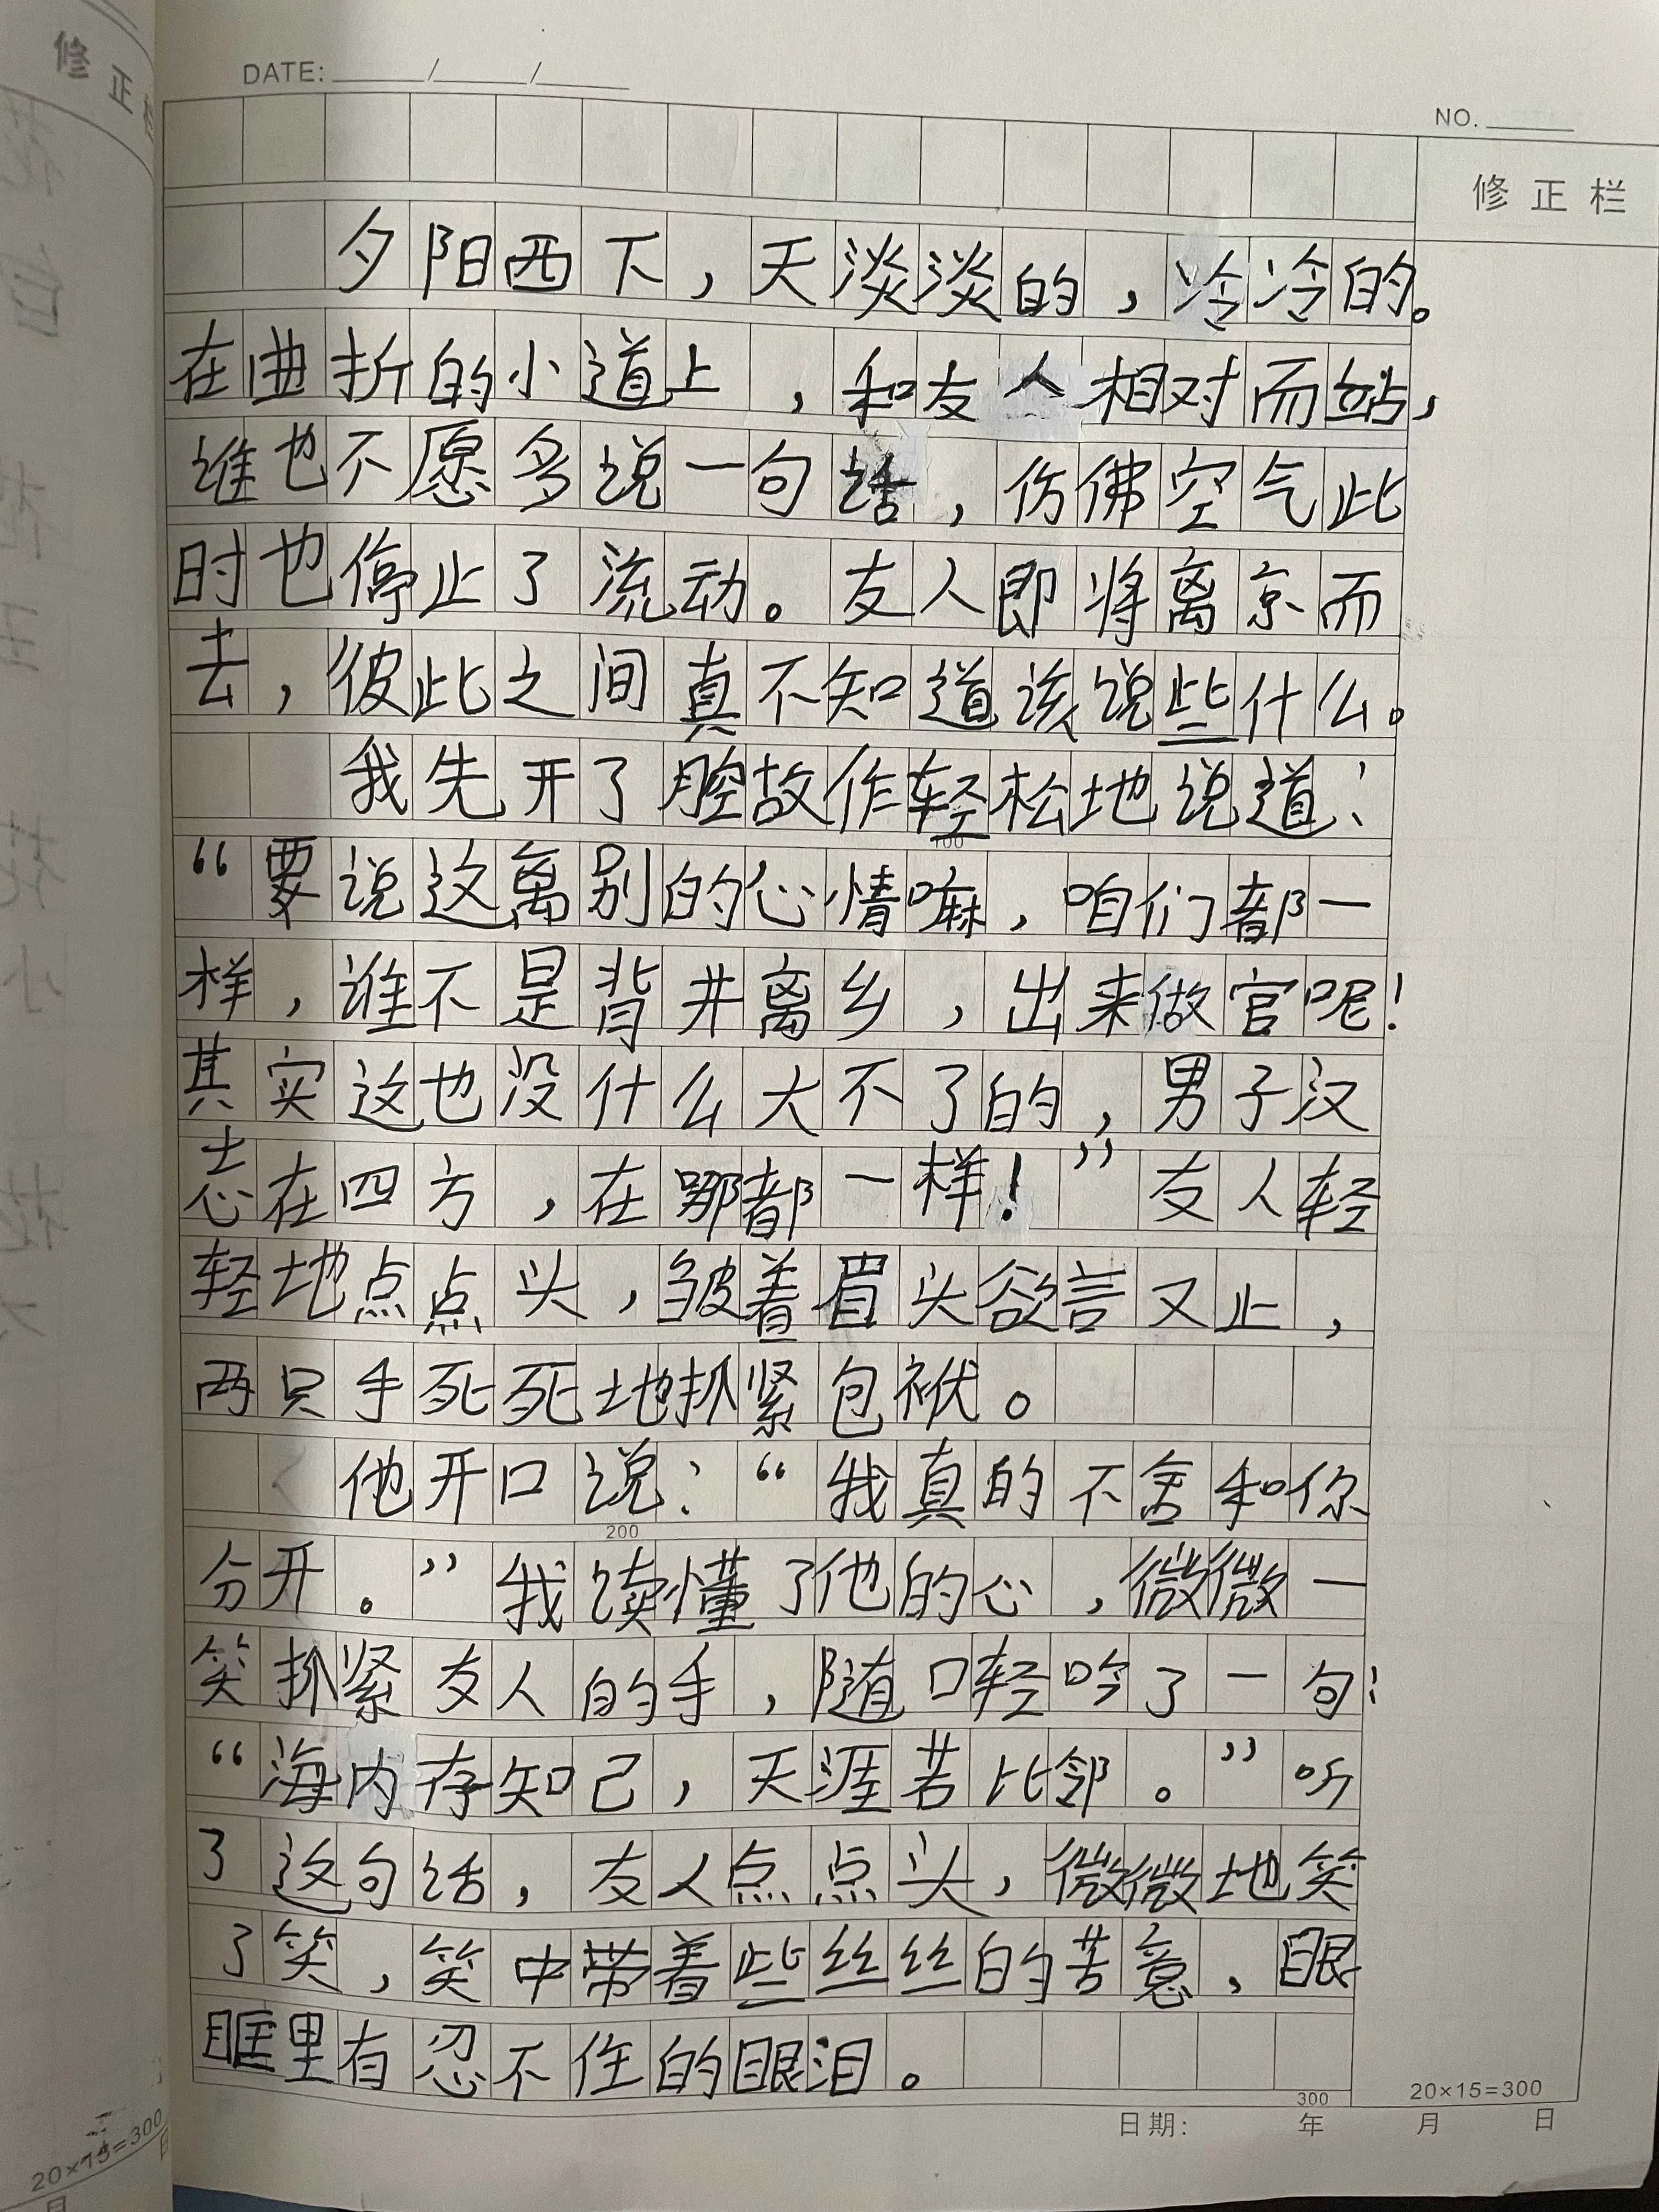 修正
DATE: / /
NO.
修正栏
夕阳西下，天淡淡的，冷冷的。
在曲折的小道上，和友人相对而站，
谁也不愿多说一句话，仿佛空气此
时也停止了流动。友人即将离京而
去，彼此之间真不知道该说些什么。
我先开了腔故作轻松地说道：
“要说这离别的心情嘛，咱们都一
样，谁不是背井离乡，出来做官呢！
其实这也没什么大不了的，男子汉
志在四方，在哪都一样！”友人轻
轻地点点头，皱着眉头欲言又止，
两只手死死地抓紧包袱。
他开口说：“我真的不舍和你
分开。”我读懂了他的心，微微一
笑抓紧友人的手，随口轻吟了一句：
“海内存知己，天涯若比邻。”听
了这句话，友人点点头，微微地笑
了笑，笑中带着些丝丝的苦意，眼
眶里有忍不住的眼泪。
100
200
300
20×15=300
日期： 年 月 日
20×15=300